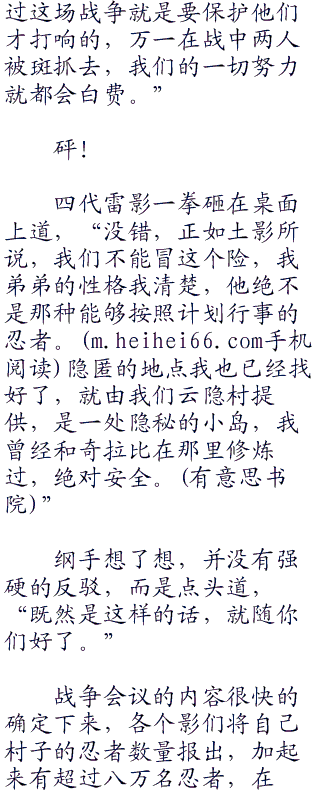 过这场战争就是要保护他们
才打响的，万一在战中两人
被斑抓去，我们的一切努力
就都会白费。”
砰！
四代雷影一拳砸在桌面
上道，“没错，正如土影所
说，我们不能冒这个险，我
弟弟的性格我清楚，他绝不
是那种能够按照计划行事的
忍者。(m.heihei66.com手机
阅读)隐匿的地点我也已经找
好了，就由我们云隐村提
供，是一处隐秘的小岛，我
曾经和奇拉比在那里修炼
过，绝对安全。(有意思书
院)”
纲手想了想，并没有强
硬的反驳，而是点头道，
“既然是这样的话，就随你
们好了。”
战争会议的内容很快的
确定下来，各个影们将自己
村子的忍者数量报出，加起
来有超过八万名忍者，在